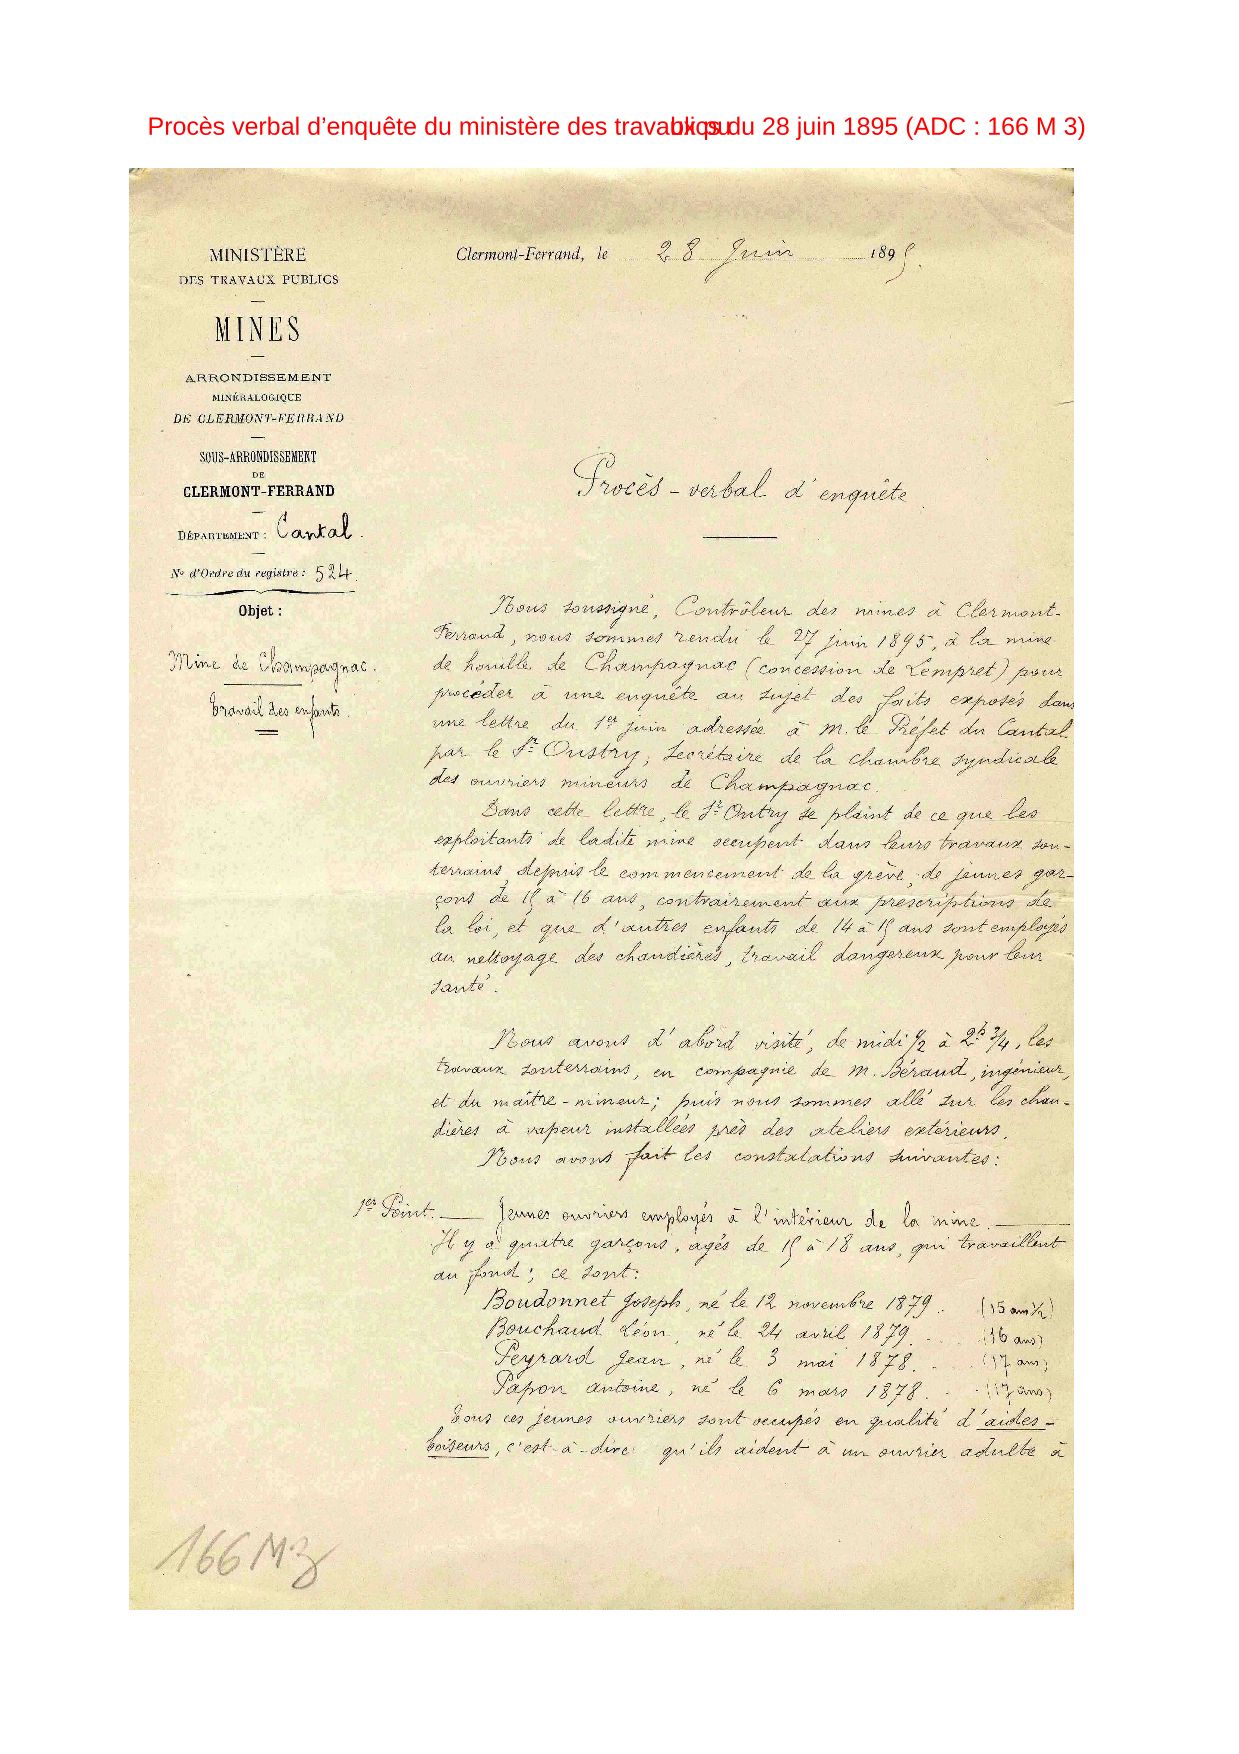 Procès verbal d'enquête du ministère des travaux publics du 28 juin 1895 (ADC : 166 M 3)
MINISTÈRE
DES TRAVAUX PUBLICS
MINES
ARRONDISSEMENT
MINÉRALOGIQUE
DE CLERMONT-FERRAND
SOUS-ARRONDISSEMENT
DE
CLERMONT-FERRAND
DÉPARTEMENT : Cantal.
No d'Ordre du registre : 524.
Objet :
Mine de Champagnac.
Travail des enfants.
Clermont-Ferrand, le 28 Juin 1895.
Procès-verbal d'enquête
Nous soussigné, Contrôleur des mines à Clermont-
Ferrand, nous sommes rendu le 27 juin 1895, à la mine
de houille de Champagnac (concession de Lempret) pour
procéder à une enquête au sujet des faits exposés dans
une lettre du 1er juin adressée à M. le Préfet du Cantal
par le Sr Oustry, secrétaire de la chambre syndicale
des ouvriers mineurs de Champagnac.
Dans cette lettre, le Sr Outry se plaint de ce que les
exploitants de ladite mine occupent dans leurs travaux sou-
terrains, depuis le commencement de la grève, de jeunes gar-
çons de 15 à 16 ans, contrairement aux prescriptions de
la loi, et que d'autres enfants de 14 à 15 ans sont employés
au nettoyage des chaudières, travail dangereux pour leur
santé.
Nous avons d'abord visité, de midi 1/2 à 2h 3/4, les
travaux souterrains, en compagnie de M. Béraud, ingénieur,
et du maître-mineur; puis nous sommes allé sur les chau-
dières à vapeur installées près des ateliers extérieurs.
Nous avons fait les constatations suivantes :
1er Point. — Jeunes ouvriers employés à l'intérieur de la mine. —
Il y a quatre garçons, agés de 15 à 18 ans, qui travaillent
au fond; ce sont :
Boudonnet Joseph, né le 12 novembre 1879. (15 ans 1/2)
Bouchaud Léon, né le 24 avril 1879. . (16 ans)
Peyrard Jean, né le 3 mai 1878. . (17 ans)
Papon antoine, né le 6 mars 1878. . (17 ans)
Tous ces jeunes ouvriers sont occupés en qualité d'aides-
boiseurs, c'est-à-dire qu'ils aident à un ouvrier adulte à
166 M 3